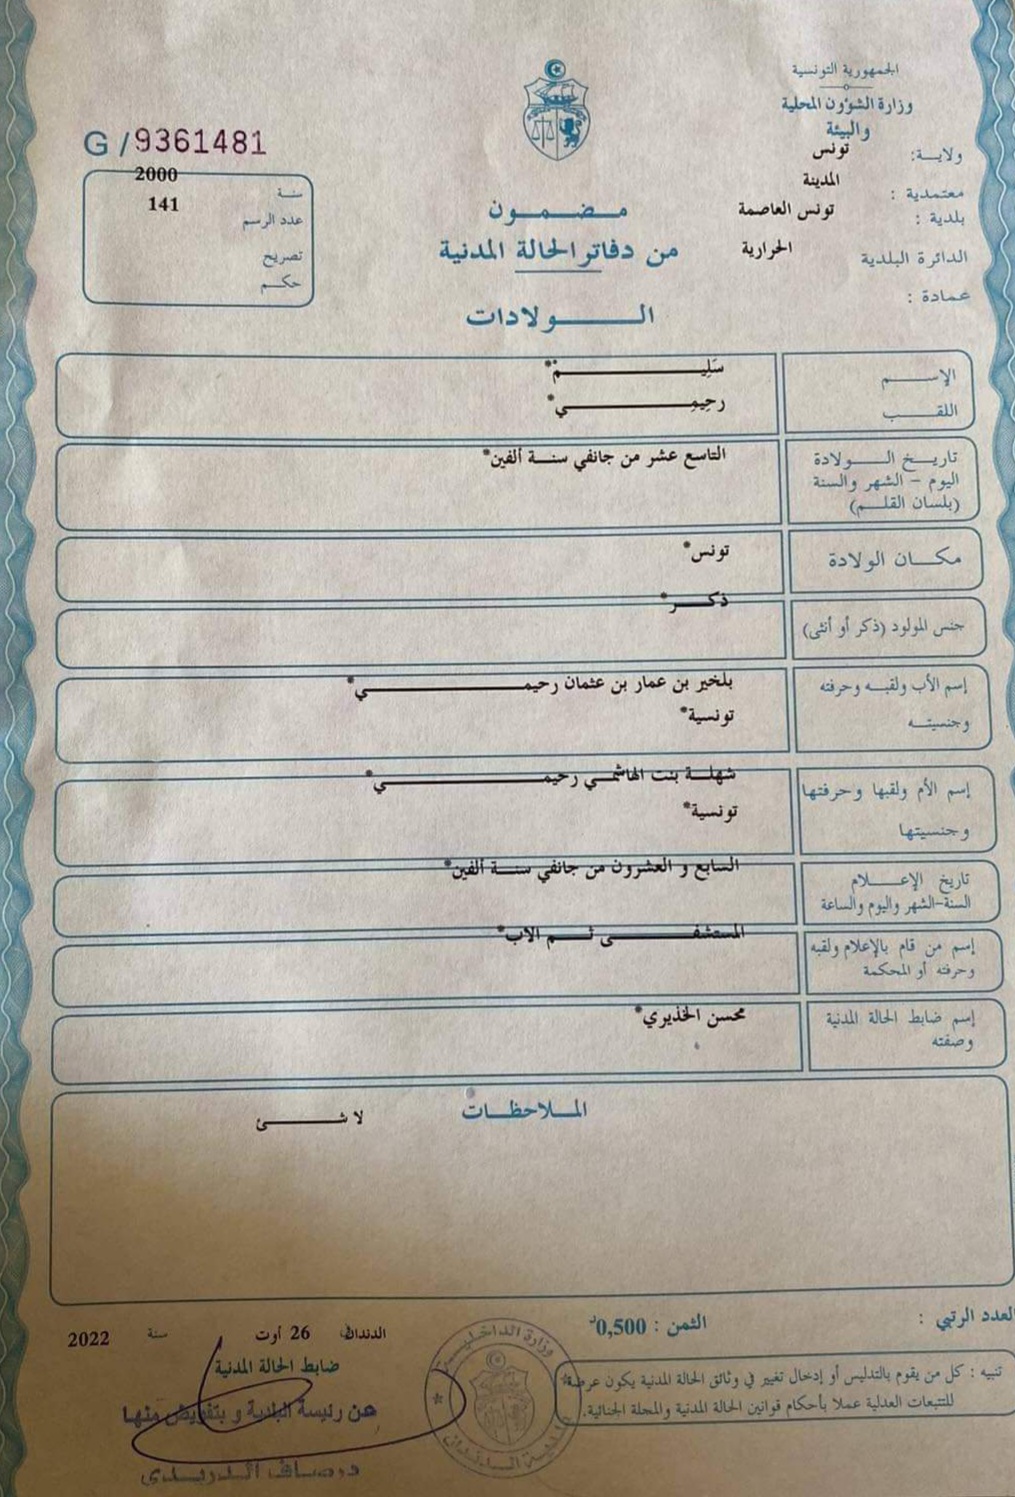 الجمهورية التونسية
وزارة الشؤون المحلية
والبيئة
ولاية: تونس
معتمدية : المدينة
بلدية : تونس العاصمة
الدائرة البلدية الحرارية
عمادة :
G /9361481
سنة 2000
عدد الرسم 141
تصريح
حكم
مضمون
من دفاتر الحالة المدنية
الولادات
الإسم سَلِيم*
اللقب رحِيمِي*
تاريخ الولادة التاسع عشر من جانفي سنة ألفين*
اليوم - الشهر والسنة
(بلسان القلم)
مكان الولادة تونس*
جنس المولود (ذكر أو أنثى) ذكر*
إسم الأب ولقبه وحرفته بلخير بن عمار بن عثمان رحيمي*
وجنسيته تونسية*
إسم الأم ولقبها وحرفتها شهلة بنت الهاشمي رحيمي*
وجنسيتها تونسية*
تاريخ الإعلام السابع و العشرون من جانفي سنة ألفين*
السنة-الشهر واليوم والساعة
إسم من قام بالإعلام ولقبه المستشفى ثم الاب*
وحرفته أو المحكمة
إسم ضابط الحالة المدنية محسن الخذيري*
وصفته
الملاحظات
لا شئ
العدد الرتبي :
الثمن : 0,500د
الدندان في 26 أوت سنة 2022
ضابط الحالة المدنية
عن رئيسة البلدية و بتفويض منها
تنبيه : كل من يقوم بالتدليس أو إدخال تغيير في وثائق الحالة المدنية يكون عرضة
للتتبعات العدلية عملا بأحكام قوانين الحالة المدنية والمجلة الجنائية.
وزارة الداخلية
بلدية الدندان